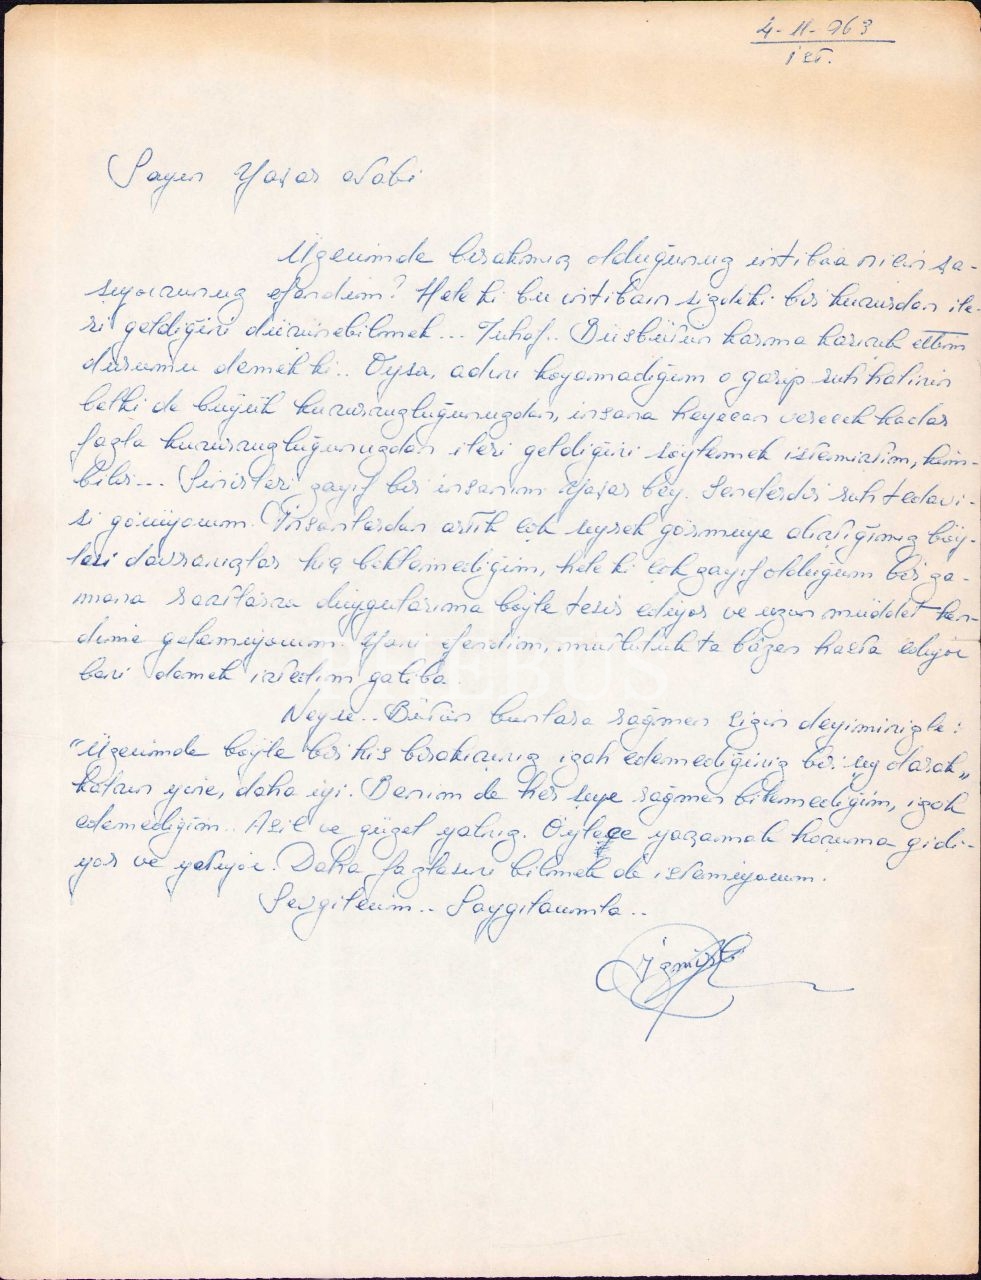 4-11-963
İst.
Sayın Yaşar Nabi
Üzerimde bırakmış olduğunuz intibaa niçin şa-
şıyorsunuz efendim? Hele ki bu intibaın sizdeki bir kusurdan ile-
ri geldiğini düşünebilmek... Tuhaf.. Büsbütün karma karışık ettim
durumu demek ki.. Oysa, adını koyamadığım o garip ruh halinin
belki de büyük kusursuzluğunuzdan, insana heyecan verecek kadar
fazla kusursuzluğunuzdan ileri geldiğini söylemek istemiştim, kim-
bilir... Sinirleri zayıf bir insanım Yaşar bey. Senelerdir ruh tedavi-
si görüyorum. İnsanlardan artık çok seyrek görmeye alıştığımız böy-
lesi davranışlar hiç beklemediğim, hele ki çok zayıf olduğum bir za-
mana rastlarsa duygularıma böyle tesir ediyor ve uzun müddet ken-
dime gelemiyorum. Yani efendim, mutluluk ta bâzen hasta ediyor
beni demek istedim galiba.
Neyse.. Bütün bunlara rağmen sizin deyiminizle:
"Üzerimde böyle bir his bırakışınız izah edemediğiniz bir şey olarak"
kalsın yine, daha iyi. Benim de her şeye rağmen bilemediğim, izah
edemediğim.. Asil ve güzel yalnız. Öylece yaşamak hoşuma gidi-
yor ve yetiyor. Daha fazlasını bilmek de istemiyorum.
Sevgilerim.. Saygılarımla..
PHEBUS